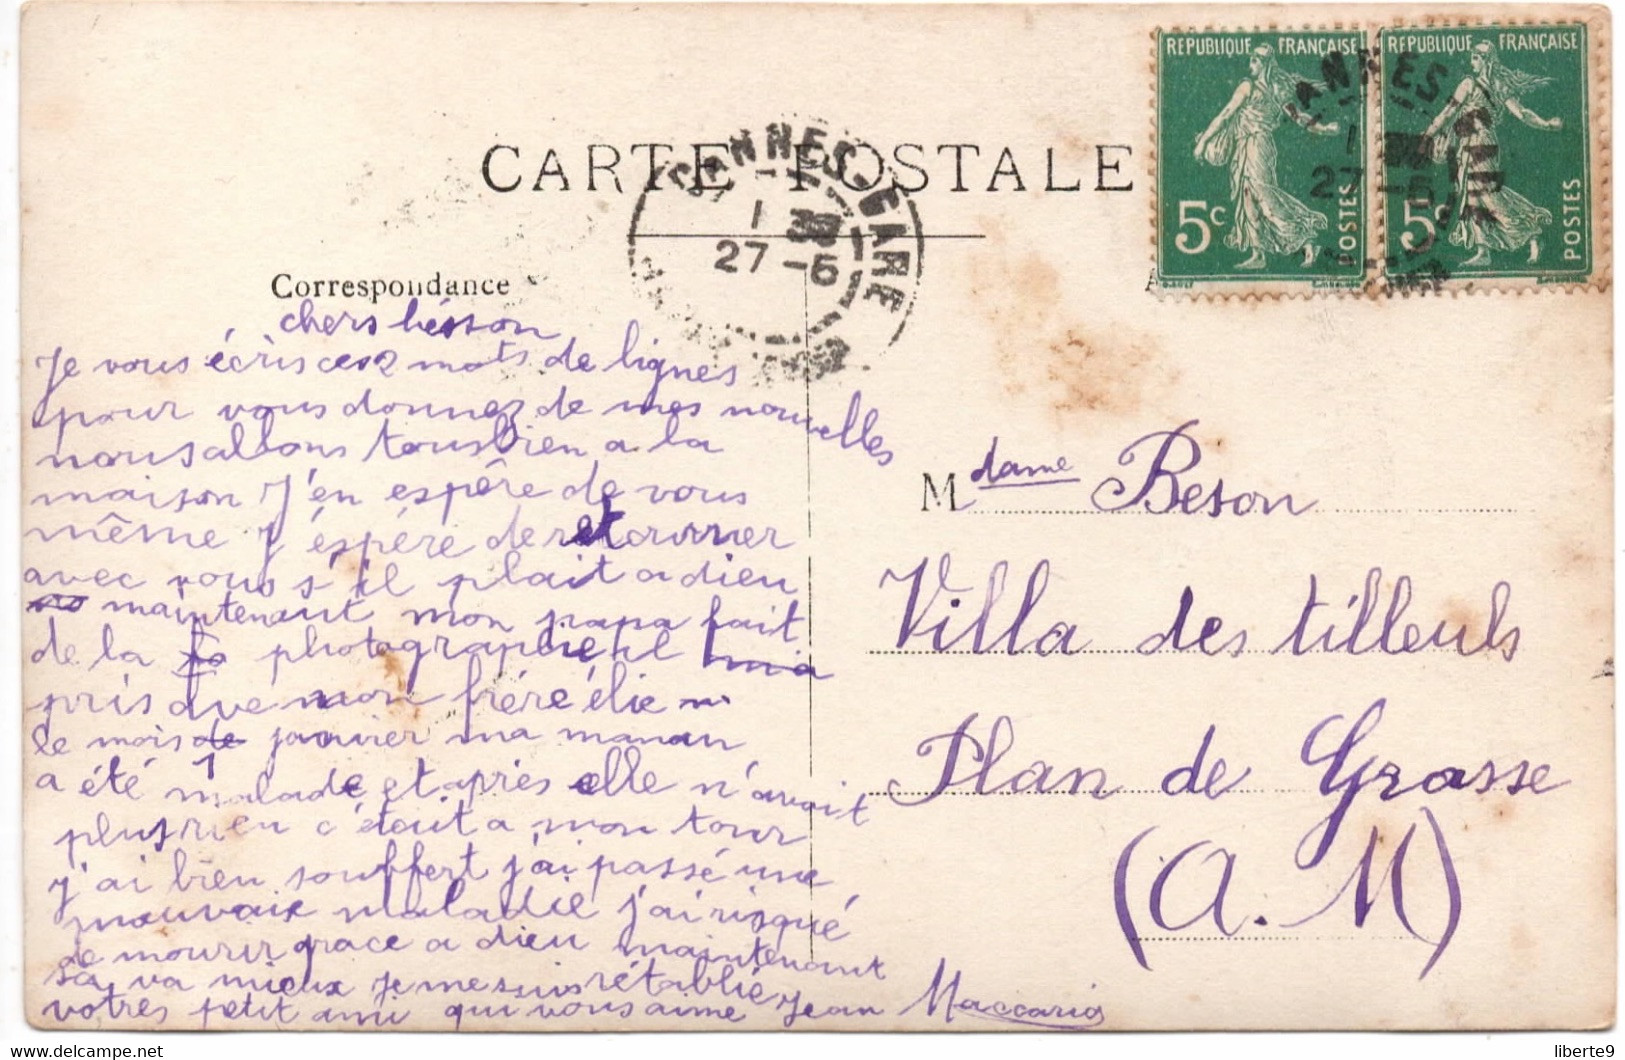 CARTE POSTALE
REPUBLIQUE FRANÇAISE
5c POSTES
REPUBLIQUE FRANÇAISE
5c POSTES
CANNES-GARE
27 -5
CANNES-GARE
27 -5
Correspondance
chers bésson
Je vous écris ces 2 mots de lignes
pour vous donnez de mes nouvelles
nous allons tous bien a la
maison J'en espère de vous
même J'éspére de retourner
avec vous s'il plait a dieu
maintenant mon papa fait
de la photographie il
pris que mon frére élie
le mois de janvier ma maman
a été malade et après elle n'avait
plus rien c'était a mon tour
j'ai bien souffert j'ai passé une
mauvaix maladie j'ai risqué
de mourir grace a dieu maintenant
sa va mieux je me suis rétablie
votres petit ami qui vous aime Jean Maccario
Mdame Beson
Villa des tilleuls
Plan de Grasse
(A. M)
liberte9
delcampe.net